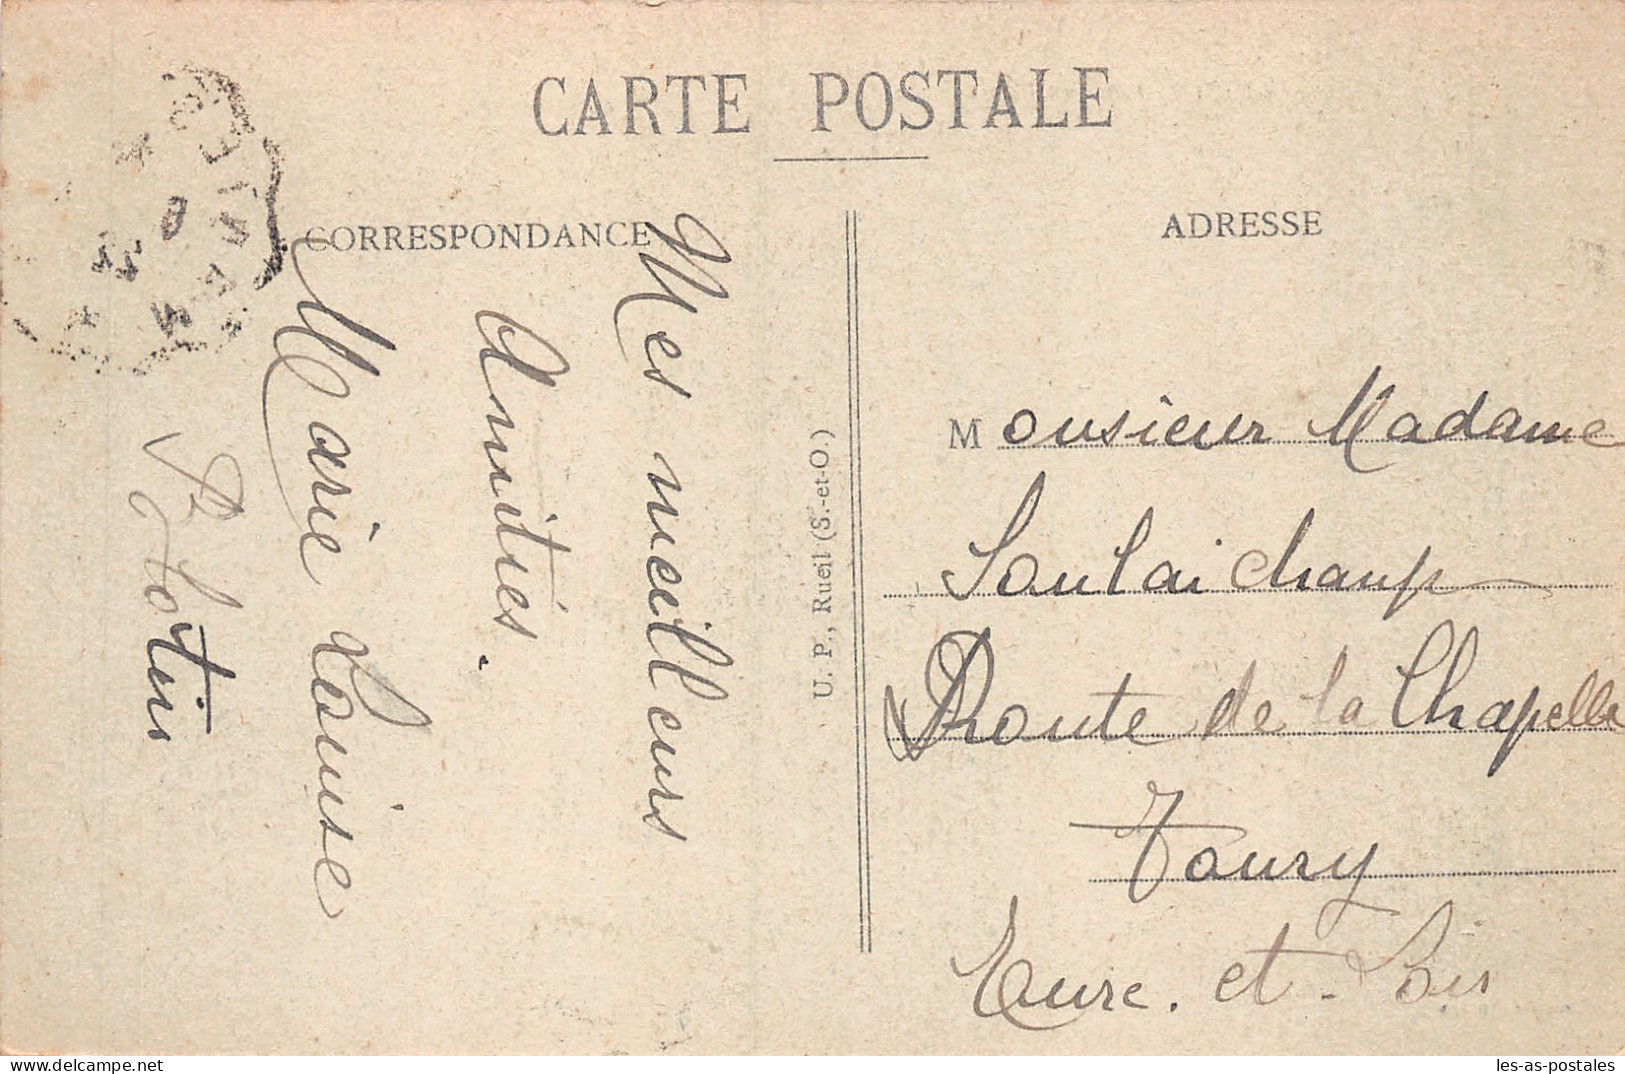 CARTE POSTALE
CORRESPONDANCE
ADRESSE
Mes meilleurs
Amitiés.
Marie Louise
Lotin
U. P., Rueil (S.-et-O.)
Monsieur Madame
Soulaichamp
Route de la Chapelle
Toury
Eure. et. Loir
les-as-postales